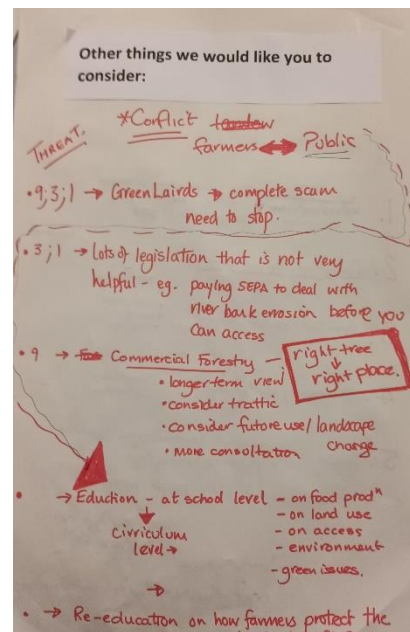 Other things we would like you to
consider:
*Conflict
THREAT.
farmers ↔ Public
• 9;3;1 → Green Lairds → complete scam
need to stop.
• 3;1 → lots of legislation that is not very
helpful - eg. paying SEPA to deal with
river bank erosion before you
can access
• 9 → Commercial Forestry — right tree
↓
right place.
• longer term view
• consider traffic
• consider future use/landscape
change
• More consultation
• → Eduction - at school level - on food prodⁿ
↓ - on land use
Cirriculum - on access
level → - environment
- green issues.
→
• → Re-education on how farmers protect the